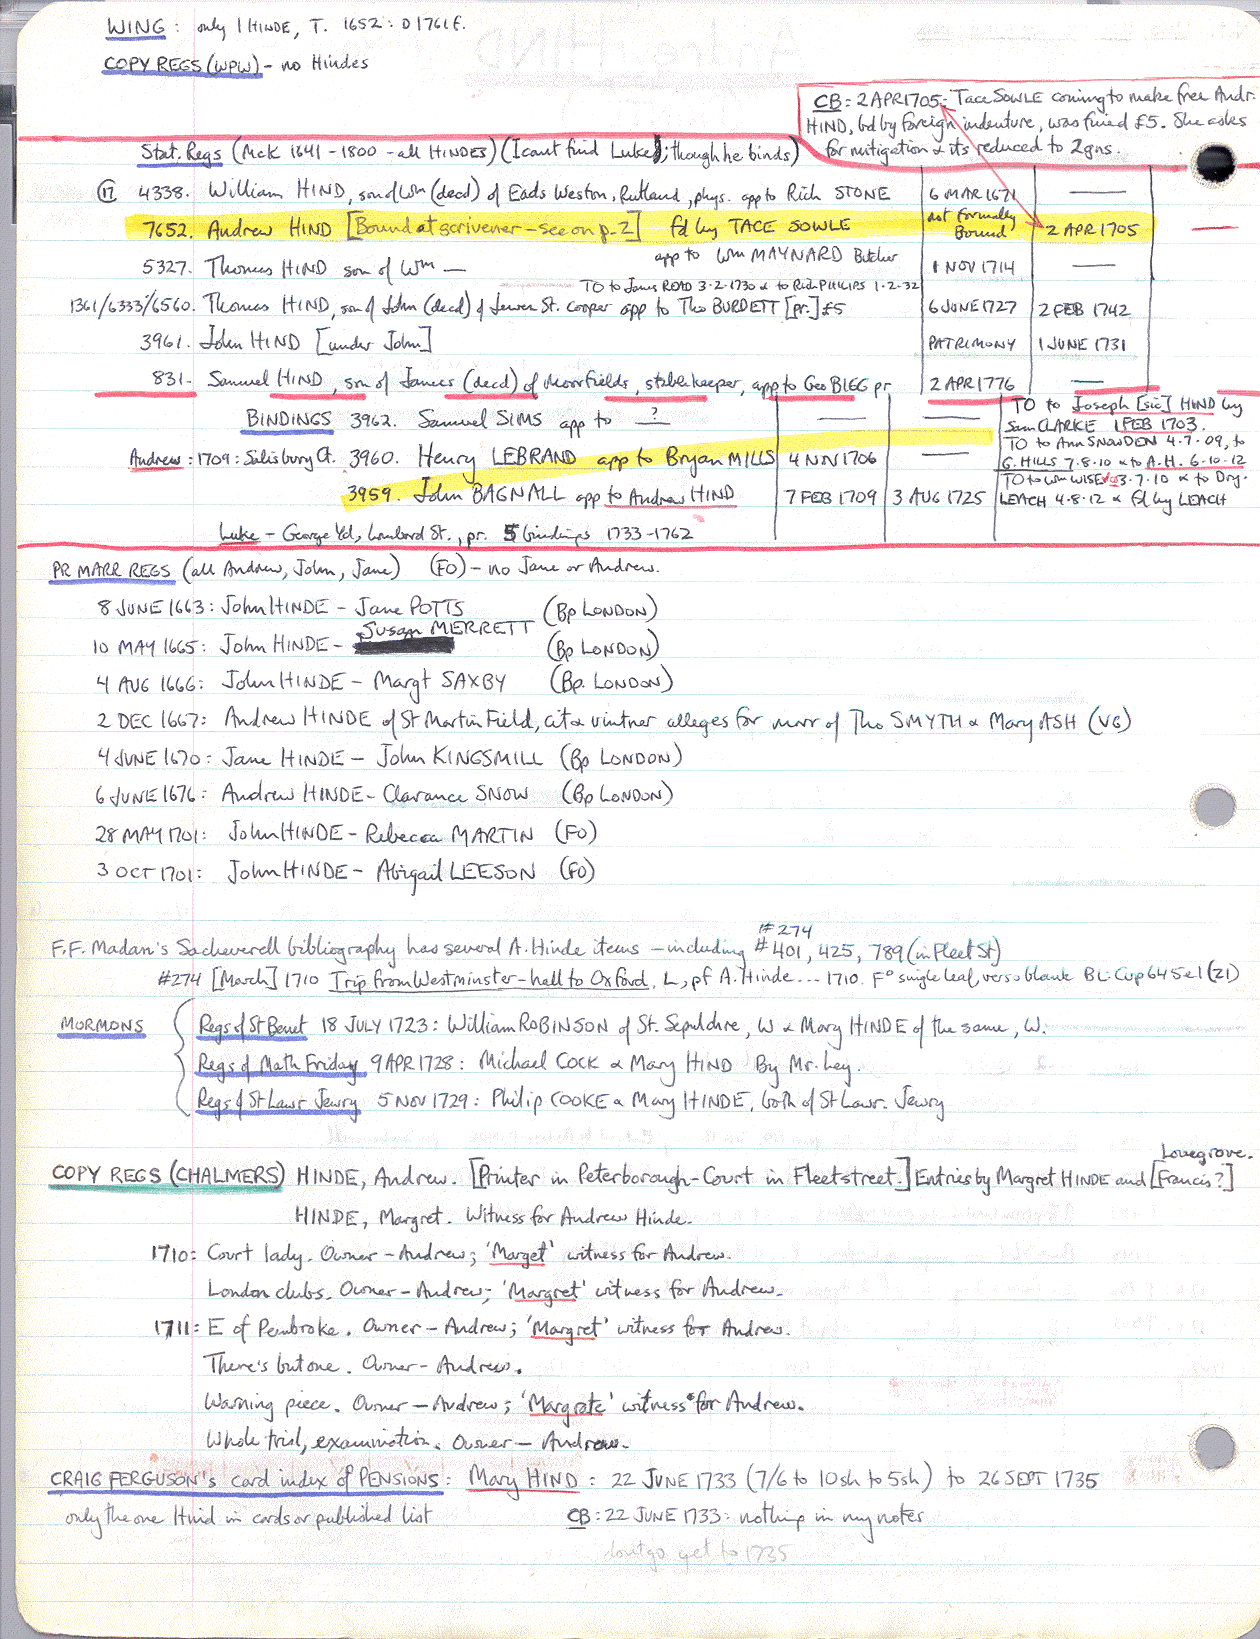 WING: only 1 HINDE, T. 1652: D1761E.
COPY REGS (WPW) - no Hindes
CB: 2 APR 1705: Tace SOWLE coming to make free Andr.
HIND, bd by foreign indenture, was fined £5. She asks
for mitigation & its reduced to 2gns.
Stat. Regs (McK 1641-1800 - all HINDES) (I cant find Luke; though he binds)
(17) 4338. William HIND, son of Wm (decd) of Eads Weston, Rutland, phys. app to Rich STONE 6 MAR 1671 —
7652. Andrew HIND [Bound at scrivener - see on p-2] fd by TACE SOWLE not formally Bound 2 APR 1705 —
5327. Thomas HIND son of Wm — app to Wm MAYNARD Butcher 1 NOV 1714 —
TO to James READ 3.2.1730 & to Rich PHILLIPS 1.2.32
1361/6333/6560. Thomas HIND, son of John (decd) of Jewen St. cooper app to Tho BURDETT [pr.] £5 6 JUNE 1727 2 FEB 1742
3961. John HIND [under John] PATRIMONY 1 JUNE 1731
831. Samuel HIND, son of James (decd) of Moorfields, stablekeeper, app to Geo BIGG pr 2 APR 1776 —
BINDINGS 3962. Samuel SIMS app to ? — — TO to Joseph [sic] HIND by
Sam CLARKE 1 FEB 1703.
Andrew: 1709: Salisbury Ct. 3960. Henry LEBRAND app to Bryan MILLS 4 NOV 1706 — TO to Ann SNOWDEN 4.7.09, to
G. HILLS 7.8.10 & to A.H. 6.10.12
3959. John BAGNALL app to Andrew HIND 7 FEB 1709 3 AUG 1725 TO to Wm WISE 3.7.10 & to Dry.
LEACH 4.8.12 & fd by LEACH
Luke - George Yd, Lombard St., pr. 5 bindings 1733-1762
PR MARR REGS (all Andrew, John, Jane) (FO) - no Jane or Andrew.
8 JUNE 1663: John HINDE - Jane POTTS (Bp LONDON)
10 MAY 1665: John HINDE - Susan MERRETT (Bp LONDON)
4 AUG 1666: John HINDE - Margt SAXBY (Bp. LONDON)
2 DEC 1667: Andrew HINDE of St Martin Field, cit & vintner alleges for marr of Tho SMYTH & Mary ASH (VG)
4 JUNE 1670: Jane HINDE - John KINGSMILL (Bp LONDON)
6 JUNE 1676: Andrew HINDE - Clarance SNOW (Bp LONDON)
28 MAY 1701: John HINDE - Rebecca MARTIN (FO)
3 OCT 1701: John HINDE - Abigail LEESON (FO)
#274
F.F. Madan's Sacheverell bibliography has several A. Hinde items - including #401, 425, 789 (in Fleet St)
#274 [March] 1710 Trip from Westminster-hall to Oxford. L, pf A. Hinde... 1710. F° single leaf, verso blank BL: Cup 645e1 (21)
MORMONS
Regs of St Benet 18 JULY 1723: William ROBINSON of St. Sepulchre, W & Mary HINDE of the same, W.
Regs of Math Friday 9 APR 1728: Michael COCK & Mary HIND By Mr. Ley.
Regs of St Lawr Jewry 5 NOV 1729: Philip COOKE & Mary HINDE, both of St Lawr. Jewry
Lovegrove.
COPY REGS (CHALMERS) HINDE, Andrew. [Printer in Peterborough-Court in Fleetstreet.] Entries by Margret HINDE and [Francis?]
HINDE, Margret. Witness for Andrew Hinde.
1710: Court lady. Owner - Andrew; 'Marget' witness for Andrew.
London clubs. Owner - Andrew; 'Margret' witness for Andrew.
1711: E of Pembroke. Owner - Andrew; 'Margret' witness for Andrew.
There's but one. Owner - Andrew.
Warning piece. Owner - Andrew; 'Margrate' witness for Andrew.
Whole trial, examination. Owner - Andrew.
CRAIG FERGUSON's card index of PENSIONS: Mary HIND: 22 JUNE 1733 (7/6 to 10sh to 5sh) to 26 SEPT 1735
only the one Hind in cards or published list CB: 22 JUNE 1733: nothing in my notes
dont go yet to 1735